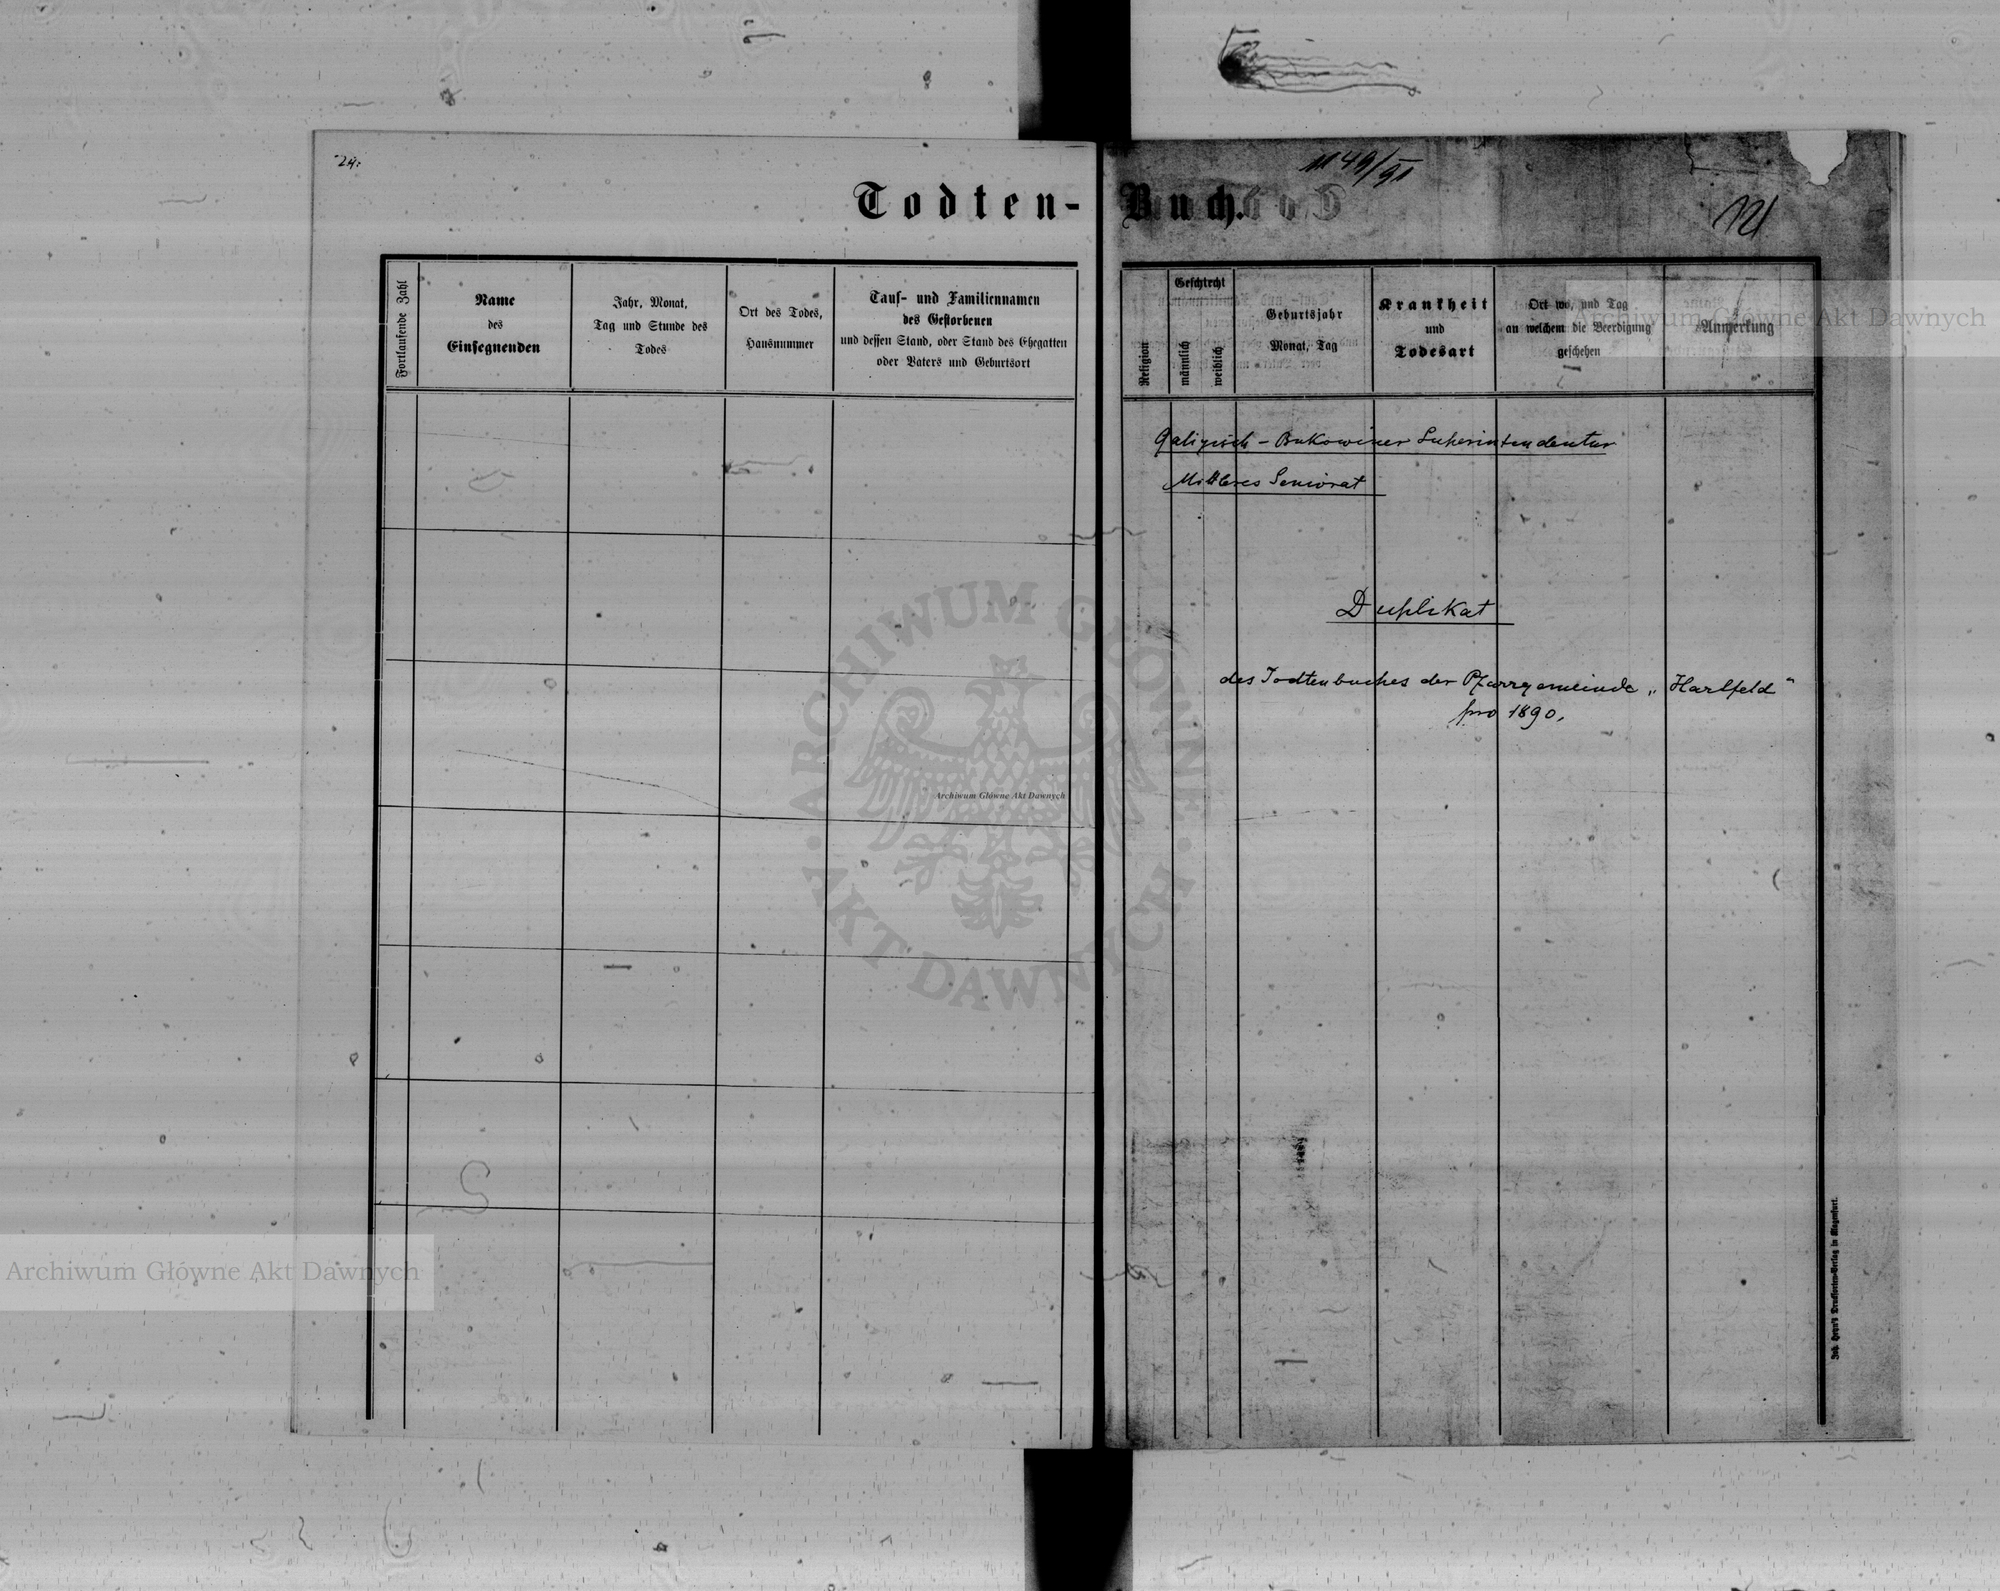 24.
Todten-
Fortlaufende Zahl
Name
des
Einsegnenden
Jahr, Monat,
Tag und Stunde des
Todes
Ort des Todes,
Hausnummer
Tauf- und Familiennamen
des Gestorbenen
und dessen Stand, oder Stand des Ehegatten
oder Vaters und Geburtsort
1149/91
Buch.
121
Religion
Geschlecht
männlich
weiblich
Geburtsjahr
Monat, Tag
Krankheit
und
Todesart
Ort wo, und Tag
an welchem die Beerdigung
geschehen
Anmerkung
Archiwum Główne Akt Dawnych
Galizisch-Bukowiner Superintendentur
Mittleres Seniorat
Duplikat
des Todtenbuches der Pfarrgemeinde „Hartfeld“
pro 1890.
ARCHIWUM GŁÓWNE AKT DAWNYCH
Archiwum Główne Akt Dawnych
Archiwum Główne Akt Dawnych
Joh. Heyn's Drucksorten-Verlag in Klagenfurt.